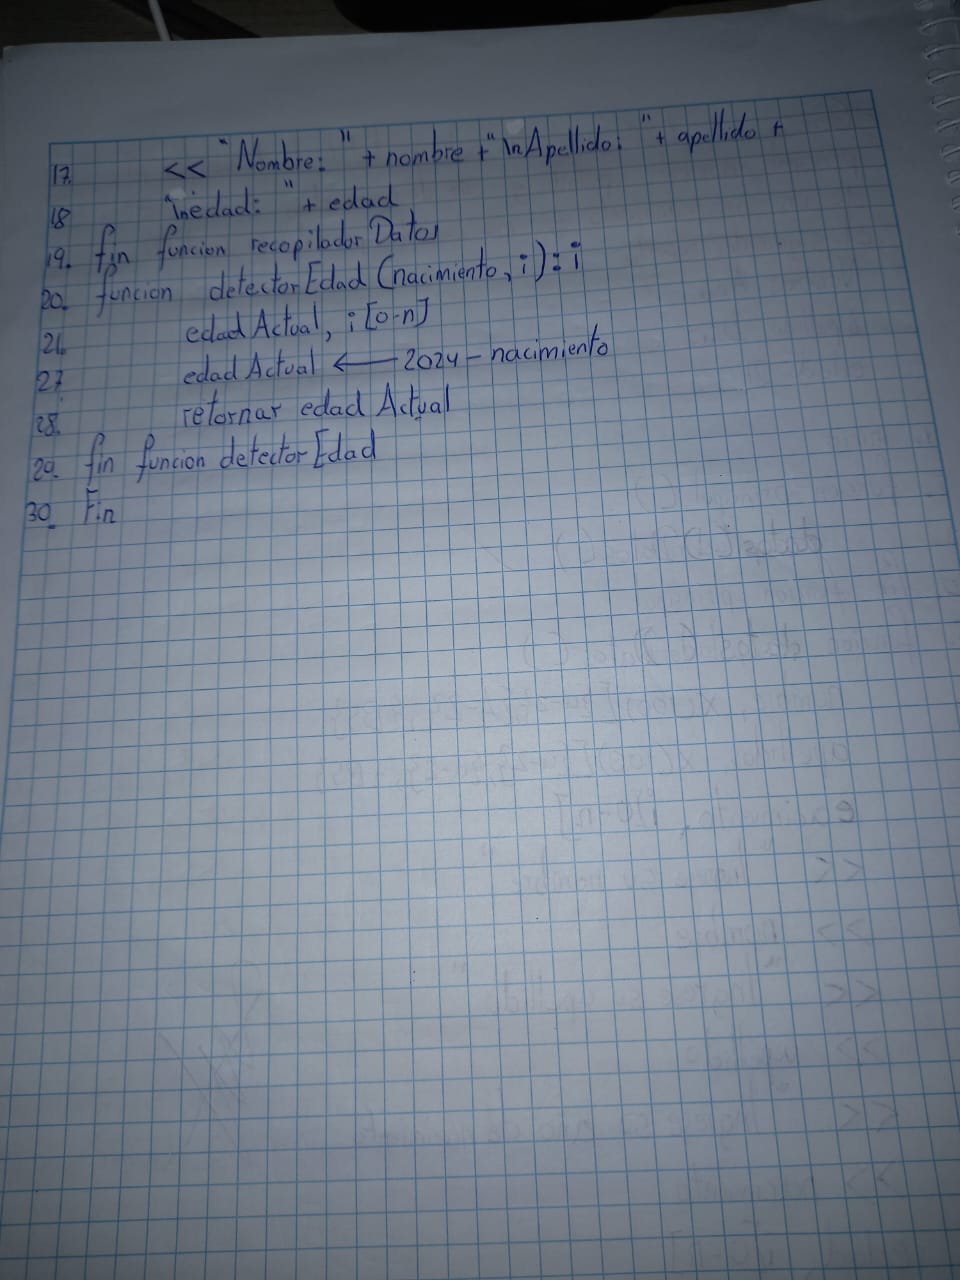 17. << "Nombre: " + nombre + "\n Apellido: " + apellido +
18 "\n edad: " + edad
19. fin funcion recopilador Datos
20. funcion detector Edad (nacimiento, i): i
26. edad Actual, i [0-n]
27. edad Actual ← 2024 - nacimiento
28. retornar edad Actual
29. fin funcion detector Edad
30. Fin